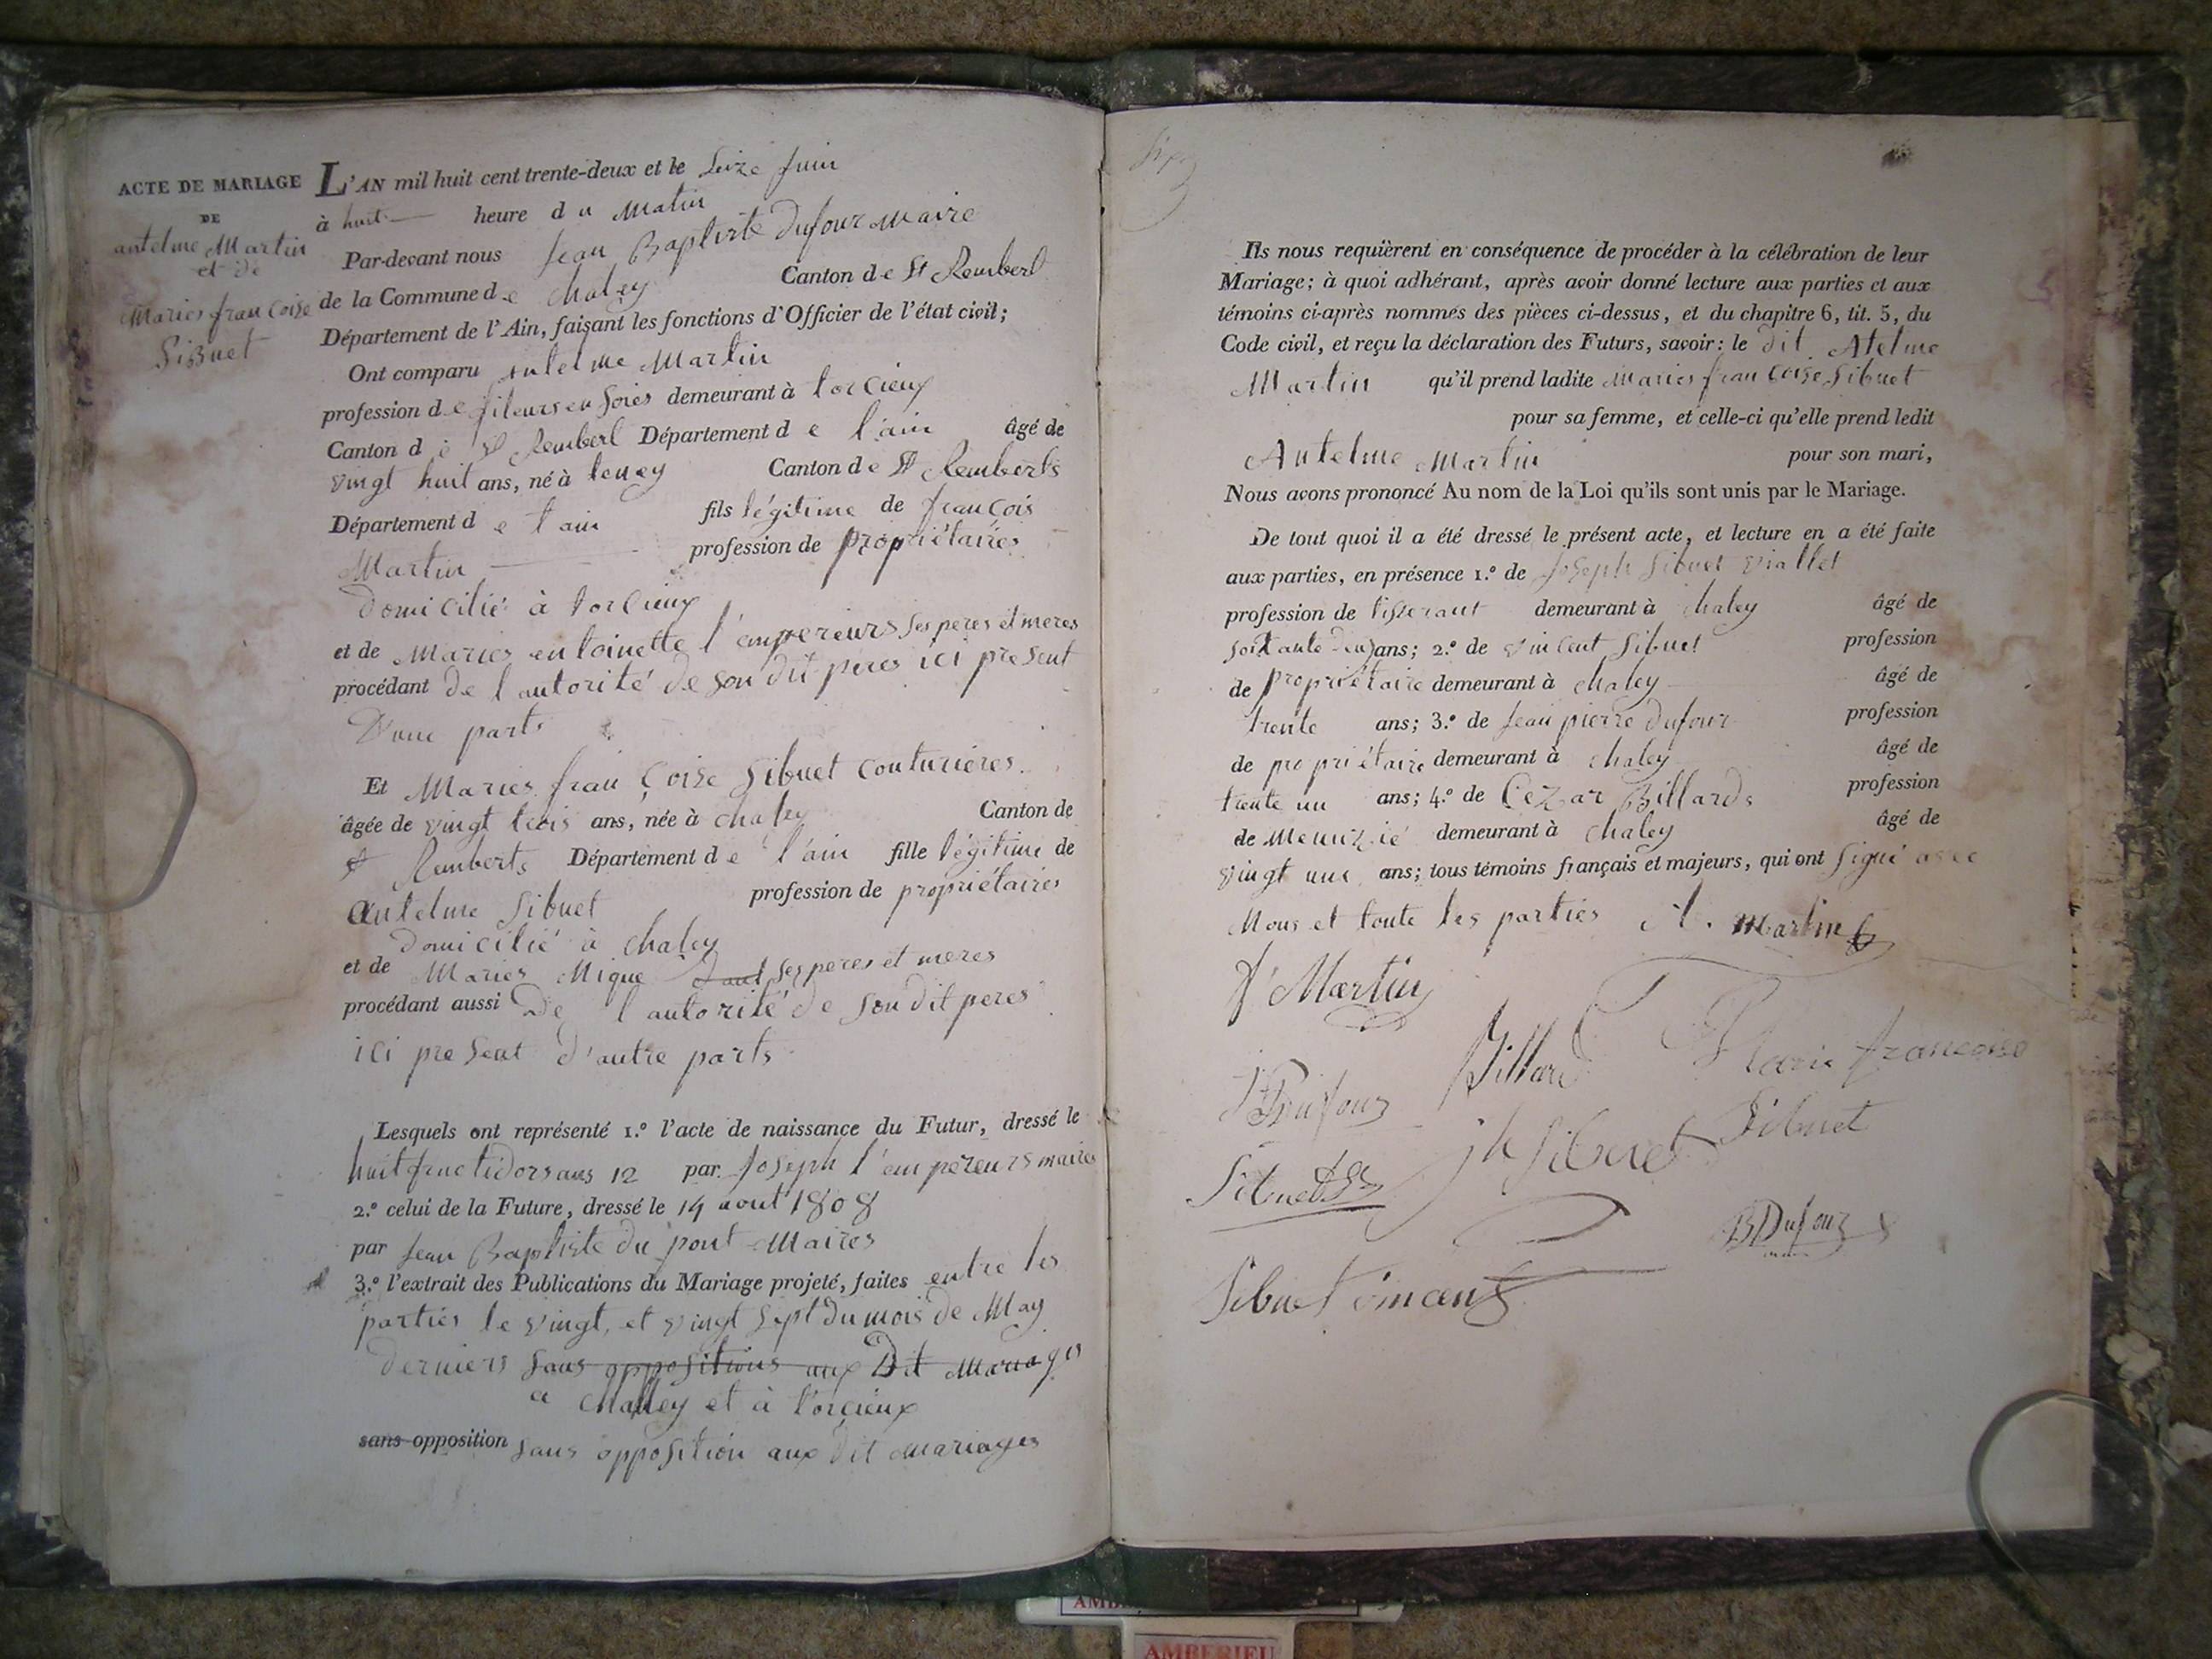 ACTE DE MARIAGE
DE
antelme Martin
et de
Maries francoise
Sibuet
L'AN mil huit cent trente-deux et le Seize Juin
à huit heure du Matin
Par-devant nous Jean Baptiste Dufour Maire
de la Commune de Chaley Canton de St Remberl
Département de l'Ain, faisant les fonctions d'Officier de l'état civil;
Ont comparu antelme Martin
profession de fileurs en Soies demeurant à torcieux
Canton de St Remberl Département de l'ain âgé de
vingt huit ans, né à teney Canton de St Remberts
Département de l'ain fils légitime de françois
Martin profession de propriétaires
Domicilié à torcieux
et de Maries entoinette l'empereurs ses peres et meres
procédant de l'autorité de son dit peres ici present
D'une parts
Et Maries françoise Sibuet couturières
âgée de vingt trois ans, née à chaley Canton de
St Remberts Département de l'ain fille légitime de
antelme Sibuet profession de propriétaires
Domicilié à chaley
et de Maries Mique ses peres et meres
procédant aussi De l'autorité de son dit peres
ici present d'autre parts
Lesquels ont représenté 1.º l'acte de naissance du Futur, dressé le
huit fructidors ans 12 par Joseph l'empereurs maires
2.º celui de la Future, dressé le 14 aout 1808
par Jean Baptiste du pont Maires
3.º l'extrait des Publications du Mariage projeté, faites entre les
parties le vingt, et vingt Sept du mois de May
derniers sans oppositions aux Dit Mariages
a Challey et à torcieux
sans opposition sans opposition aux dit mariages
Ils nous requièrent en conséquence de procéder à la célébration de leur
Mariage; à quoi adhérant, après avoir donné lecture aux parties et aux
témoins ci-après nommés des pièces ci-dessus, et du chapitre 6, tit. 5, du
Code civil, et reçu la déclaration des Futurs, savoir: le dit Atelme
Martin qu'il prend ladite Maries françoise Sibuet
pour sa femme, et celle-ci qu'elle prend ledit
Antelme Martin pour son mari,
Nous avons prononcé Au nom de la Loi qu'ils sont unis par le Mariage.
De tout quoi il a été dressé le présent acte, et lecture en a été faite
aux parties, en présence 1.º de Joseph Sibuet Viallet
profession de tisserant demeurant à chaley âgé de
ans; 2.º de Vincent Sibuet profession
de propriétaire demeurant à chaley âgé de
trente ans; 3.º de Jean pierre Dufour profession
de propriétaire demeurant à chaley âgé de
trente un ans; 4.º de Cezar Billards profession
de demeurant à chaley âgé de
vingt une ans; tous témoins français et majeurs, qui ont signé avec
Nous et toute les parties A. Martin
f Martin
Billard Marie francoise
JPDufour
Sibuet jh Sibuet Sibuet
BDufour
maire
Sibuet vincent
AMBERIEU